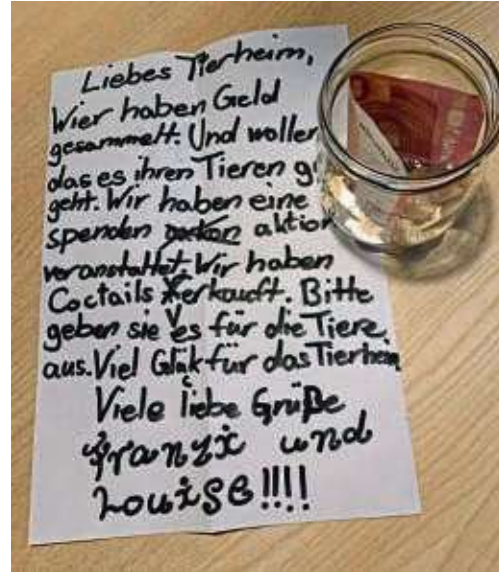 Liebes Tierheim,
Wier haben Geld
gesammelt. Und wollen
das es ihren Tieren g
geht. Wir haben eine
spenden aktion
veranstaltet. Wir haben
Coctails verkauft. Bitte
geben sie es für die Tiere
aus. Viel Glük für das Tierheim
Viele liebe Grüße
Franzi und
Louise!!!!